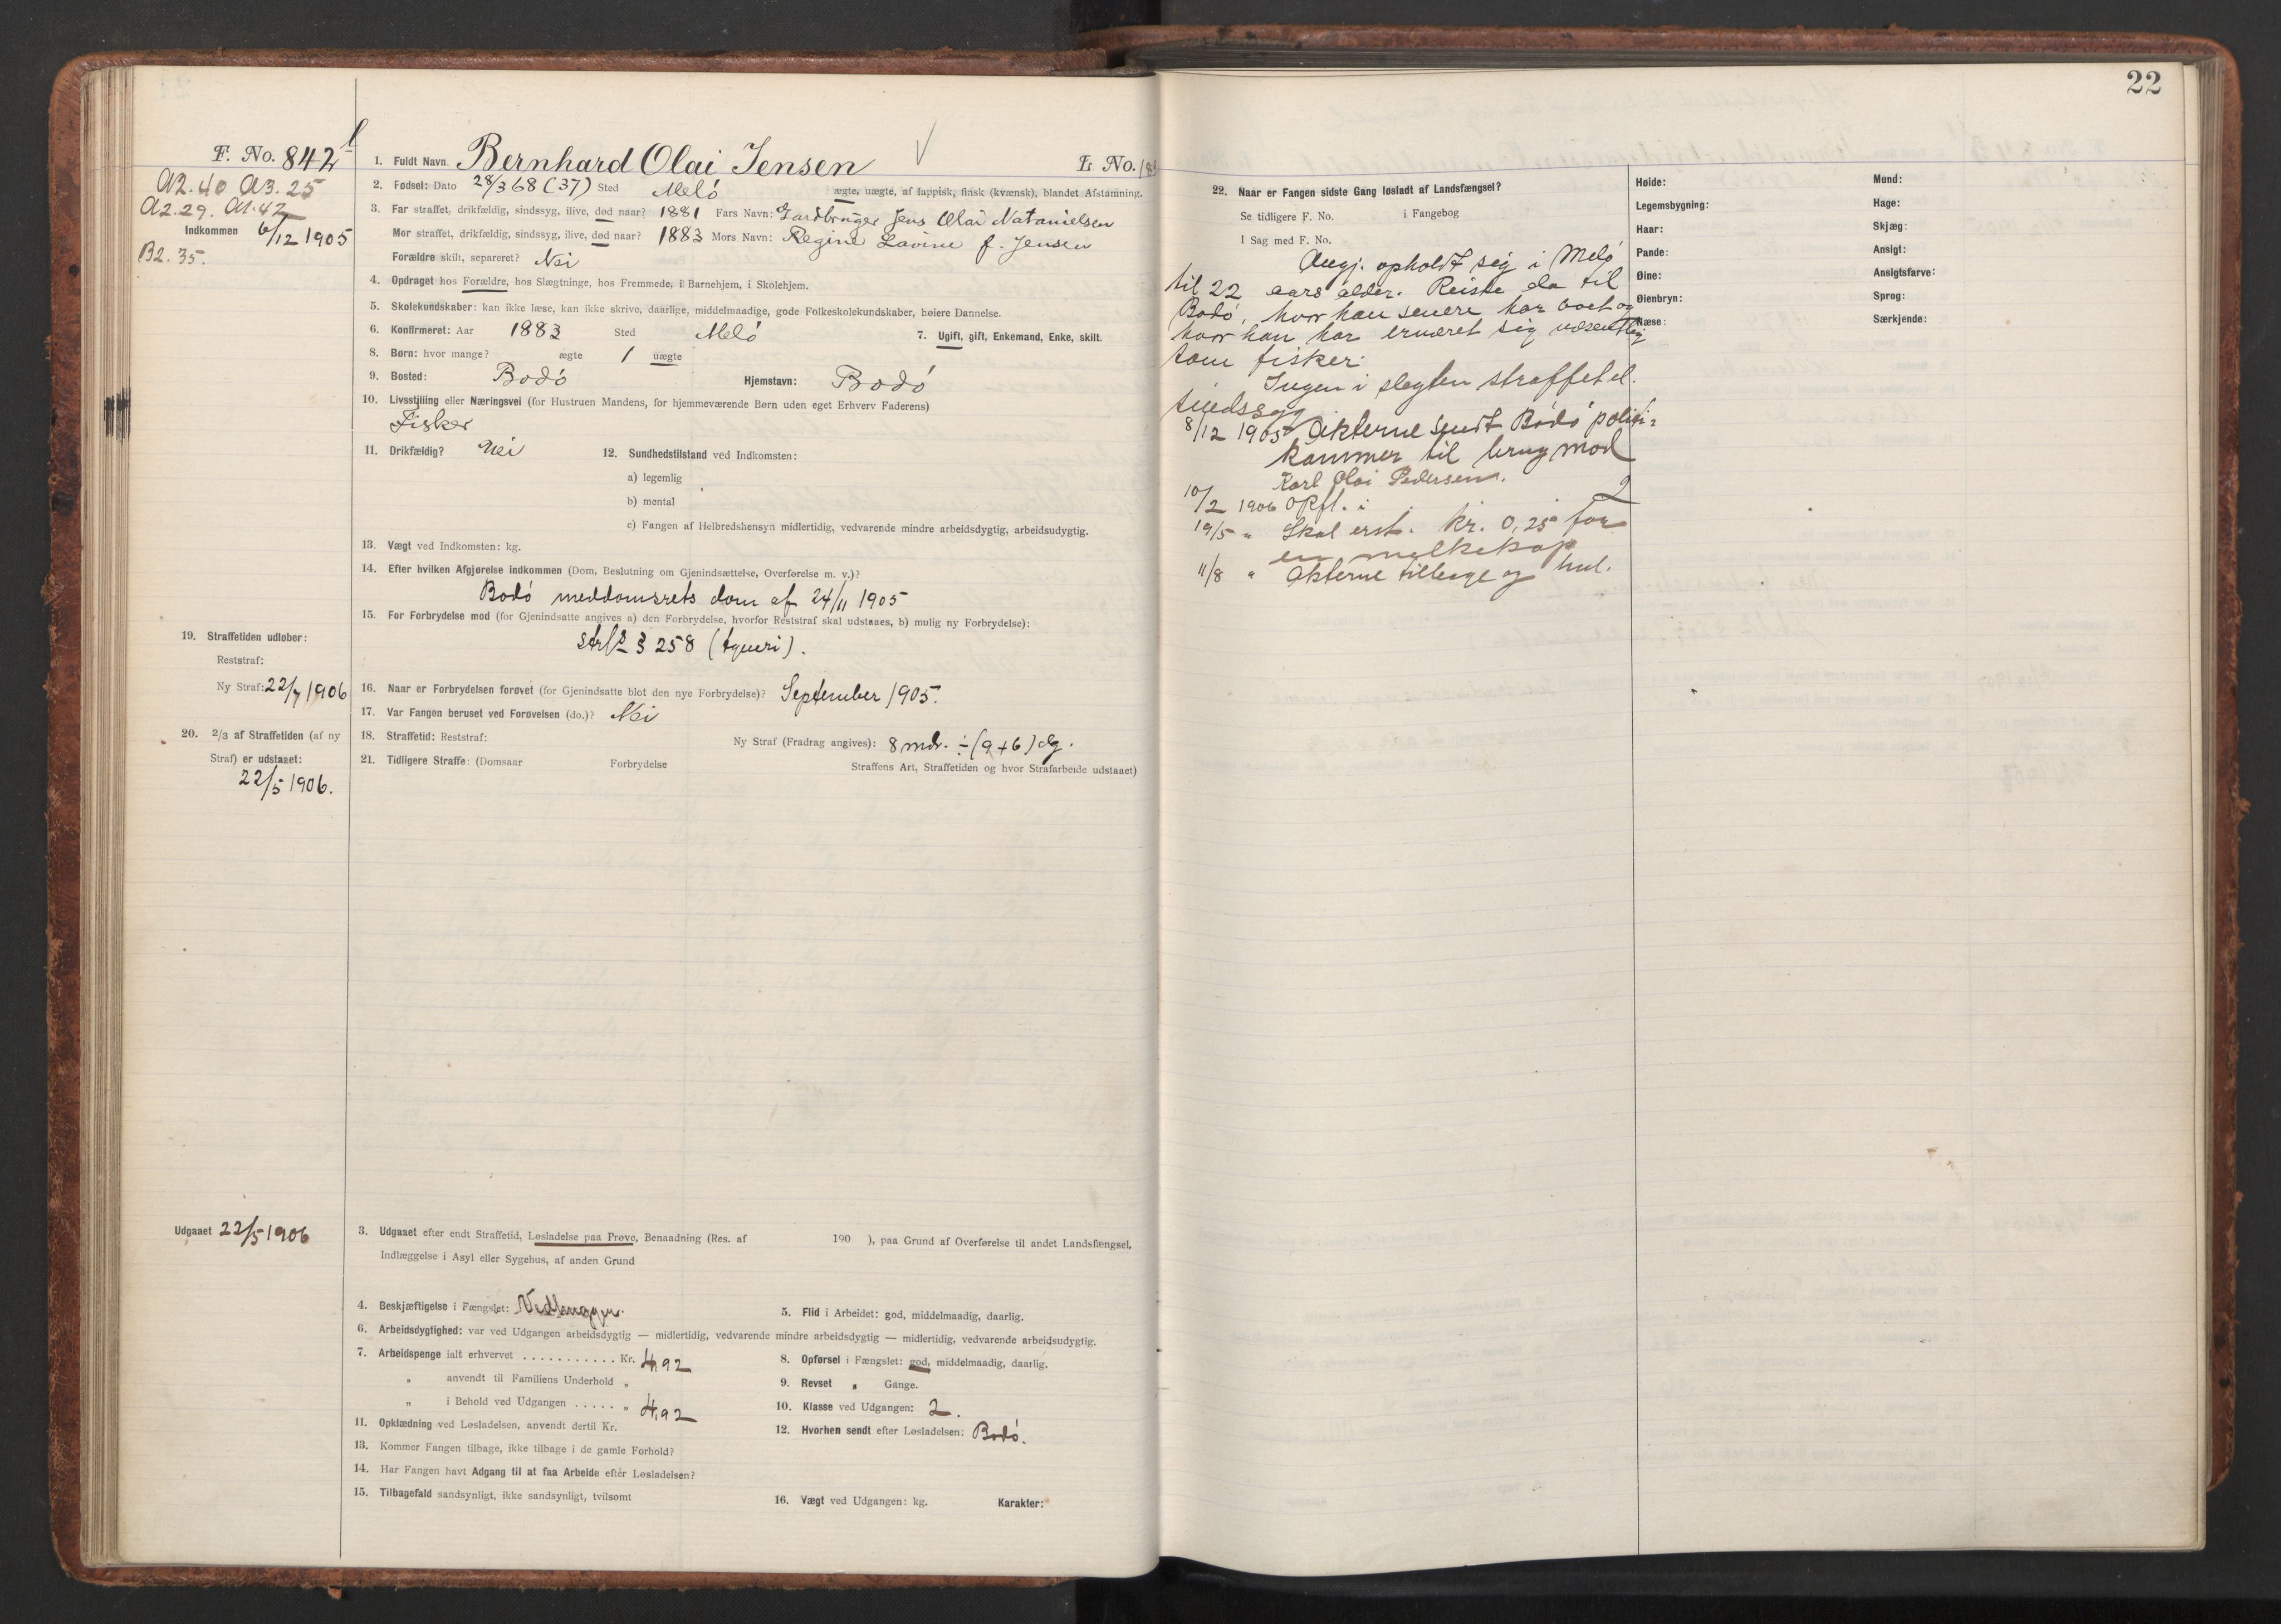 22
F. No. 842
1. Fuldt Navn Bernhard Olai Jensen L No.
A2.40 A3.25
A2.29. A1.42
Indkommen 6/12 1905
B2.35.
2. Fødsel: Dato 28/3 68 (37) Sted Melö ægte, uægte, af lappisk, finsk (kvænsk), blandet Afstamning.
3. Far straffet, drikfældig, sindssyg, ilive, død naar? 1881 Fars Navn: Gardbruger Jens Olai Natanielsen
Mor straffet, drikfældig, sindssyg, ilive, død naar? 1883 Mors Navn: Regine Lavine f. Jensen
Forældre skilt, separeret? Nei
4. Opdraget hos Forældre, hos Slægtninge, hos Fremmede, i Barnehjem, i Skolehjem.
5. Skolekundskaber: kan ikke læse, kan ikke skrive, daarlige, middelmaadige, gode Folkeskolekundskaber, høiere Dannelse.
6. Konfirmeret: Aar 1883 Sted Melö 7. Ugift, gift, Enkemand, Enke, skilt.
8. Børn: hvor mange? ægte 1 uægte
9. Bosted: Bodö Hjemstavn: Bodö
10. Livsstilling eller Næringsvei (for Hustruen Mandens, for hjemmeværende Børn uden eget Erhverv Faderens)
Fisker
11. Drikfældig? Nei 12. Sundhedstilstand ved Indkomsten:
a) legemlig
b) mental
c) Fangen af Helbredshensyn midlertidig, vedvarende mindre arbeidsdygtig, arbeidsudygtig.
13. Vægt ved Indkomsten: kg.
14. Efter hvilken Afgjørelse indkommen (Dom, Beslutning om Gjenindsættelse, Overførelse m. v.)?
Bodö meddomsrets dom af 24/11 1905
15. For Forbrydelse mod (for Gjenindsatte angives a) den Forbrydelse, hvorfor Reststraf skal udstaaes, b) mulig ny Forbrydelse):
§ 258 (tyveri).
19. Straffetiden udløber:
Reststraf:
Ny Straf: 22/7 1906
16. Naar er Forbrydelsen forøvet (for Gjenindsatte blot den nye Forbrydelse)? September 1905.
17. Var Fangen beruset ved Forøvelsen (do.)? Nei
20. 2/3 af Straffetiden (af ny
Straf) er udstaaet:
22/5 1906.
18. Straffetid: Reststraf: Ny Straf (Fradrag angives): 8 mdr. ÷ (9+6) dg.
21. Tidligere Straffe: (Domsaar Forbrydelse Straffens Art, Straffetiden og hvor Strafarbeide udstaaet)
Udgaaet 22/5 1906
3. Udgaaet efter endt Straffetid, Løsladelse paa Prøve, Benaadning (Res. af 190 ), paa Grund af Overførelse til andet Landsfængsel,
Indlæggelse i Asyl eller Sygehus, af anden Grund
4. Beskjæftigelse i Fængslet: Vedhugger. 5. Flid i Arbeidet: god, middelmaadig, daarlig.
6. Arbeidsdygtighed: var ved Udgangen arbeidsdygtig — midlertidig, vedvarende mindre arbeidsdygtig — midlertidig, vedvarende arbeidsudygtig.
7. Arbeidspenge ialt erhvervet ........... Kr. 4,92 8. Opførsel i Fængslet: god, middelmaadig, daarlig.
" anvendt til Familiens Underhold " 9. Revset " Gange.
" i Behold ved Udgangen ..... " 4,92 10. Klasse ved Udgangen: 2.
11. Opklædning ved Løsladelsen, anvendt dertil Kr. 12. Hvorhen sendt efter Løsladelsen: Bodö.
13. Kommer Fangen tilbage, ikke tilbage i de gamle Forhold?
14. Har Fangen havt Adgang til at faa Arbeide efter Løsladelsen?
15. Tilbagefald sandsynligt, ikke sandsynligt, tvilsomt 16. Vægt ved Udgangen: kg. Karakter:
22. Naar er Fangen sidste Gang løsladt af Landsfængsel?
Se tidligere F. No. i Fangebog
I Sag med F. No.
Angj. opholdt sig i Melö
til 22 aars alder. Reiste da til
Bodö, hvor han senere har boet og
hvor han har ernæret sig væsentlig
som fisker.
Ingen i slegten straffet el.
sindssyg
8/12 1905 Akterne sendt Bodö politi=
kammer til brug mod
Karl Olai Pedersen.
10/2 1906 Opfl. i 2
19/5 " Skal erst. kr. 0,25 for
en melkekop
11/8 " Akterne tilbage og
Høide:
Legemsbygning:
Haar:
Pande:
Øine:
Øienbryn:
Næse:
Mund:
Hage:
Skjæg:
Ansigt:
Ansigtsfarve:
Sprog:
Særkjende: